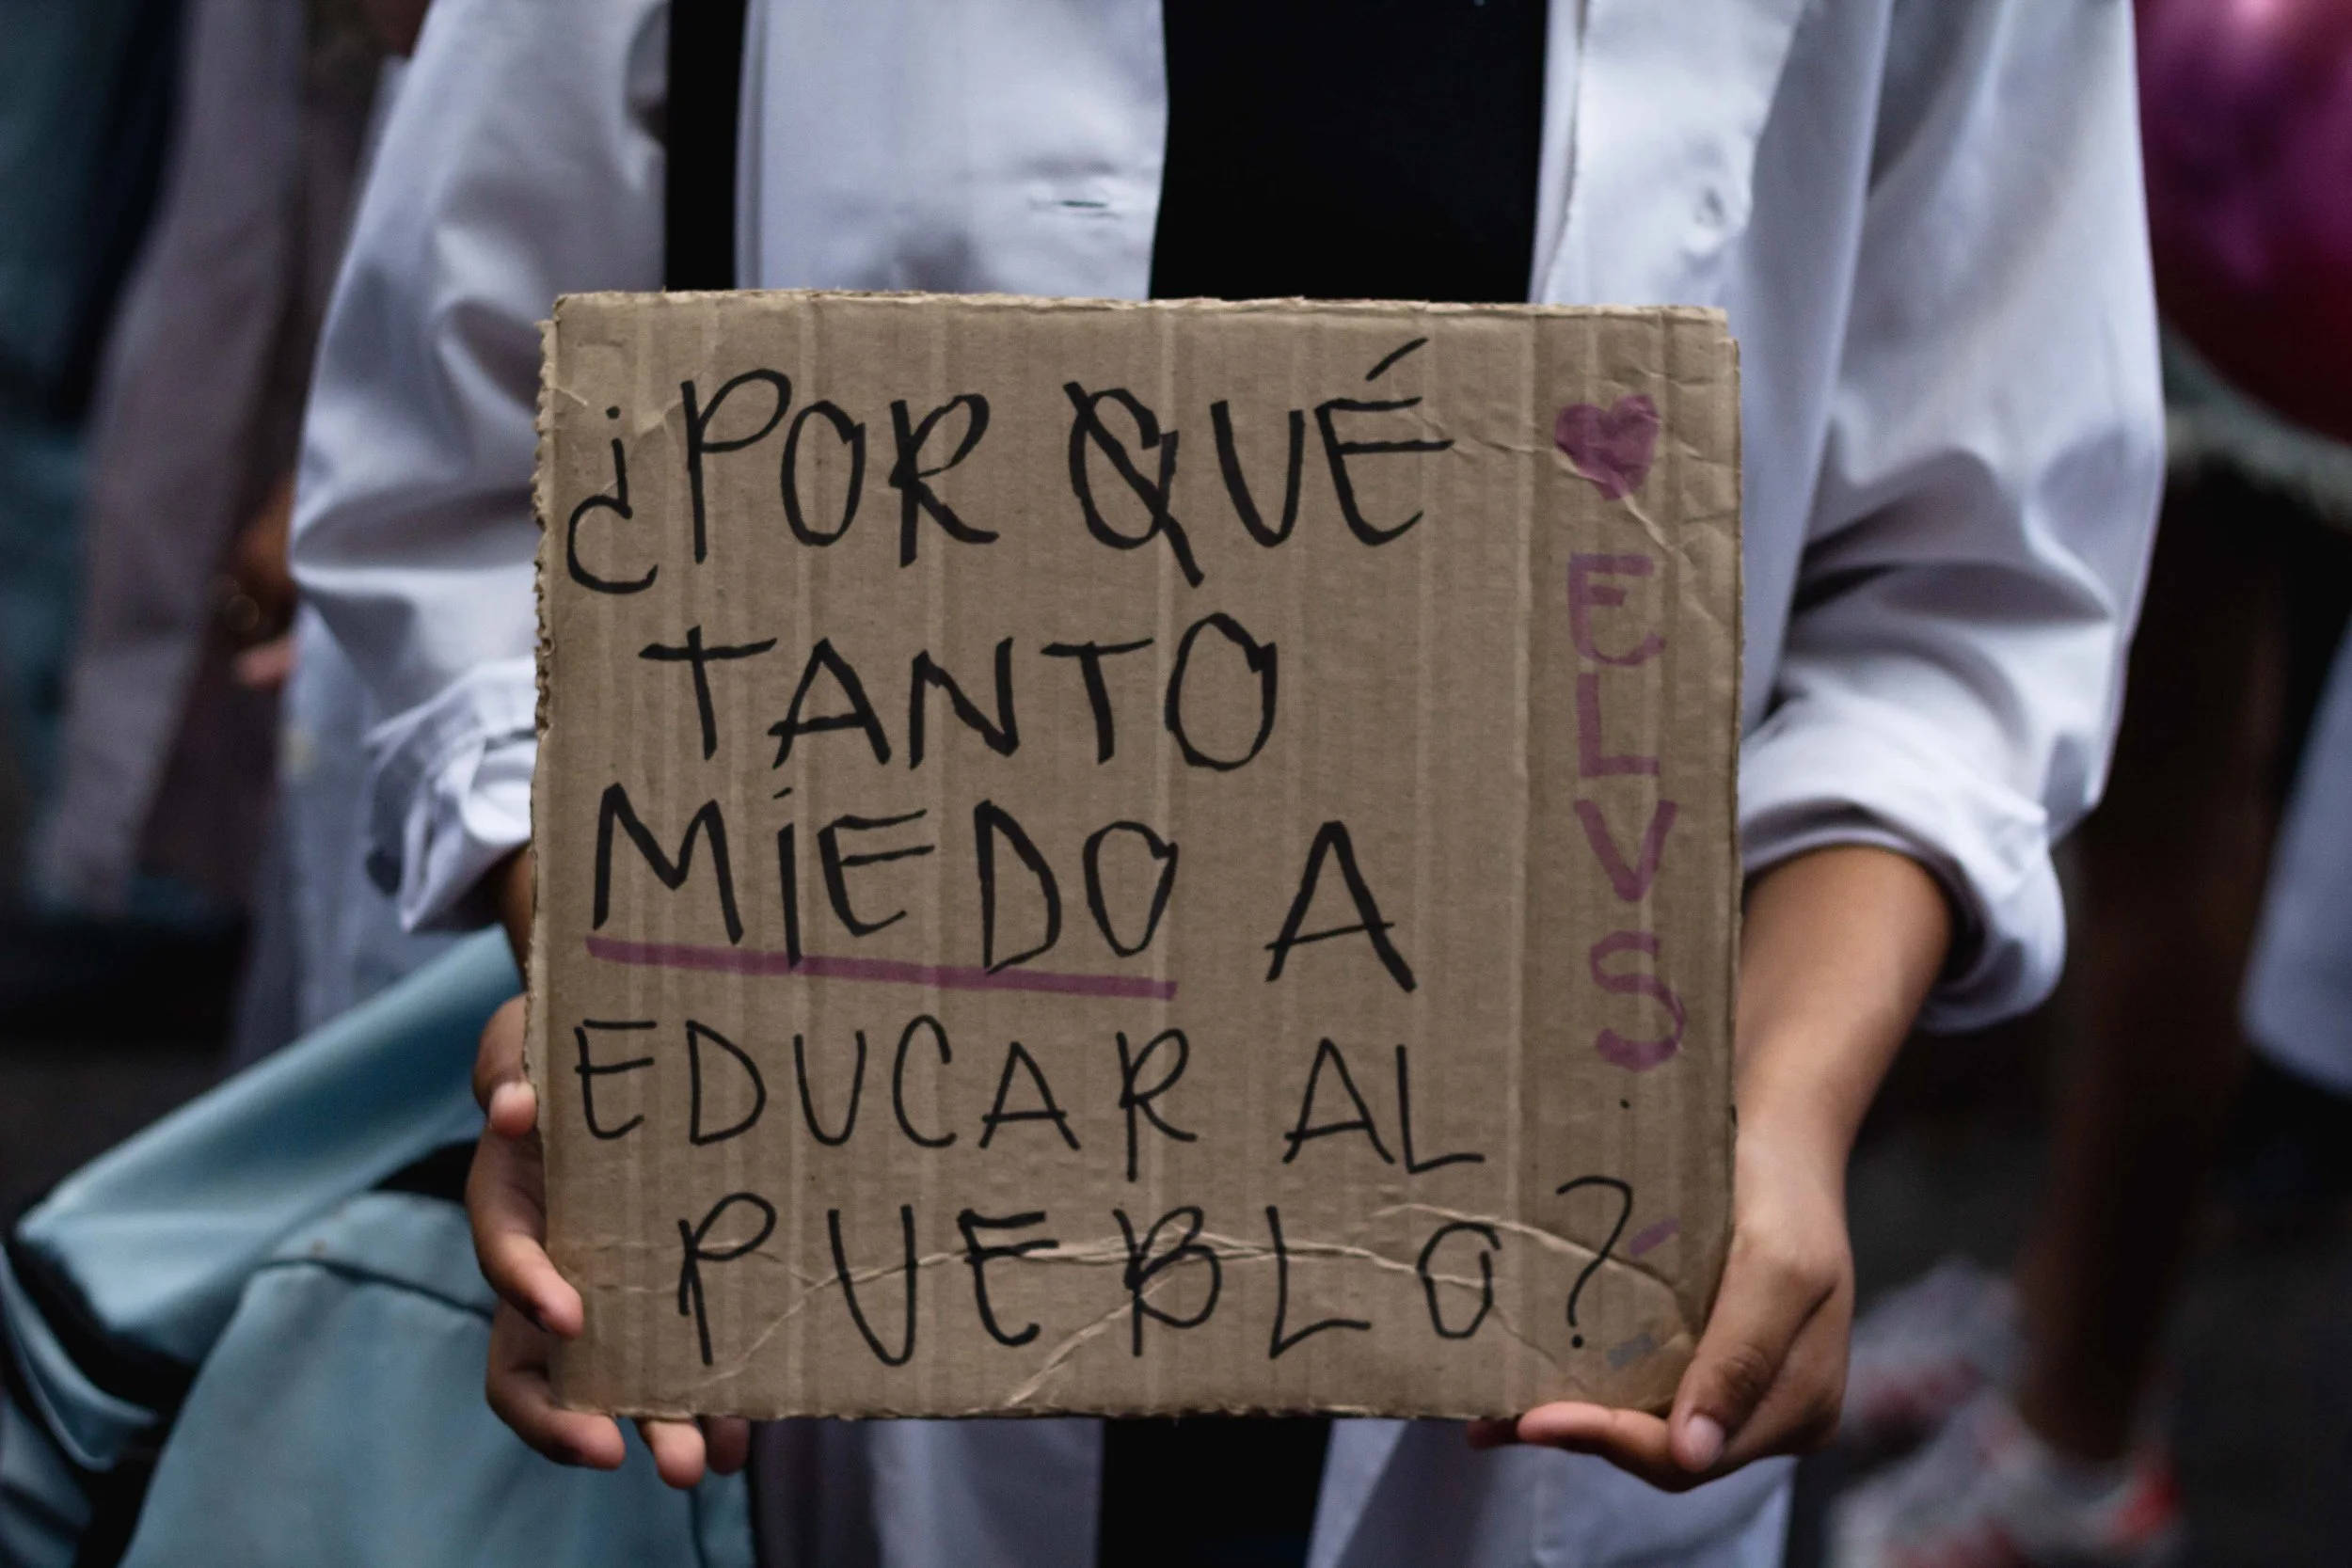 ¿POR QUÉ
TANTO
MiEDO A
EDUCAR AL
PUEBLO?
ELVS